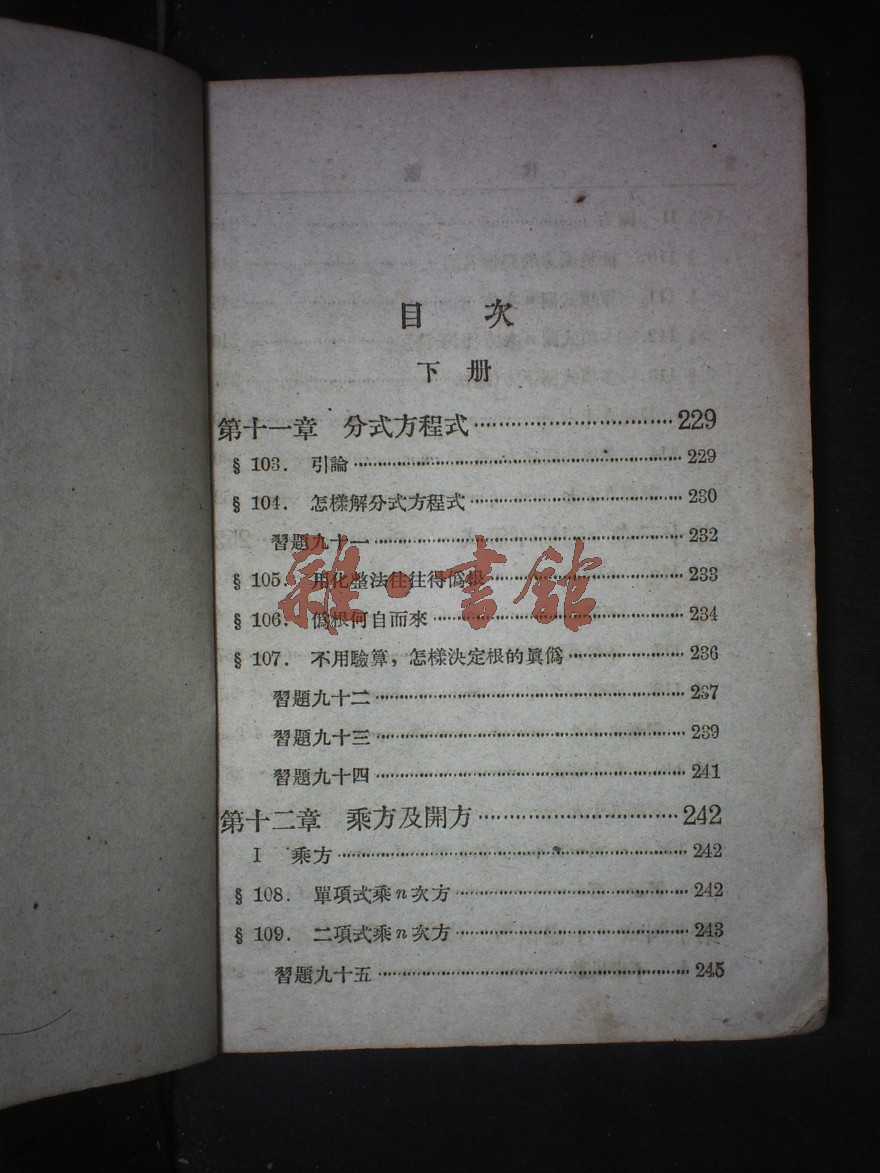 目 次
下 册
第十一章 分式方程式 229
§ 103. 引論 229
§ 104. 怎樣解分式方程式 230
習題九十一 232
§ 105. 用化整法往往得僞根 233
§ 106. 僞根何自而來 234
§ 107. 不用驗算，怎樣決定根的眞僞 236
習題九十二 237
習題九十三 239
習題九十四 241
第十二章 乘方及開方 242
I 乘方 242
§ 108. 單項式乘n次方 242
§ 109. 二項式乘n次方 243
習題九十五 245
雜·書館